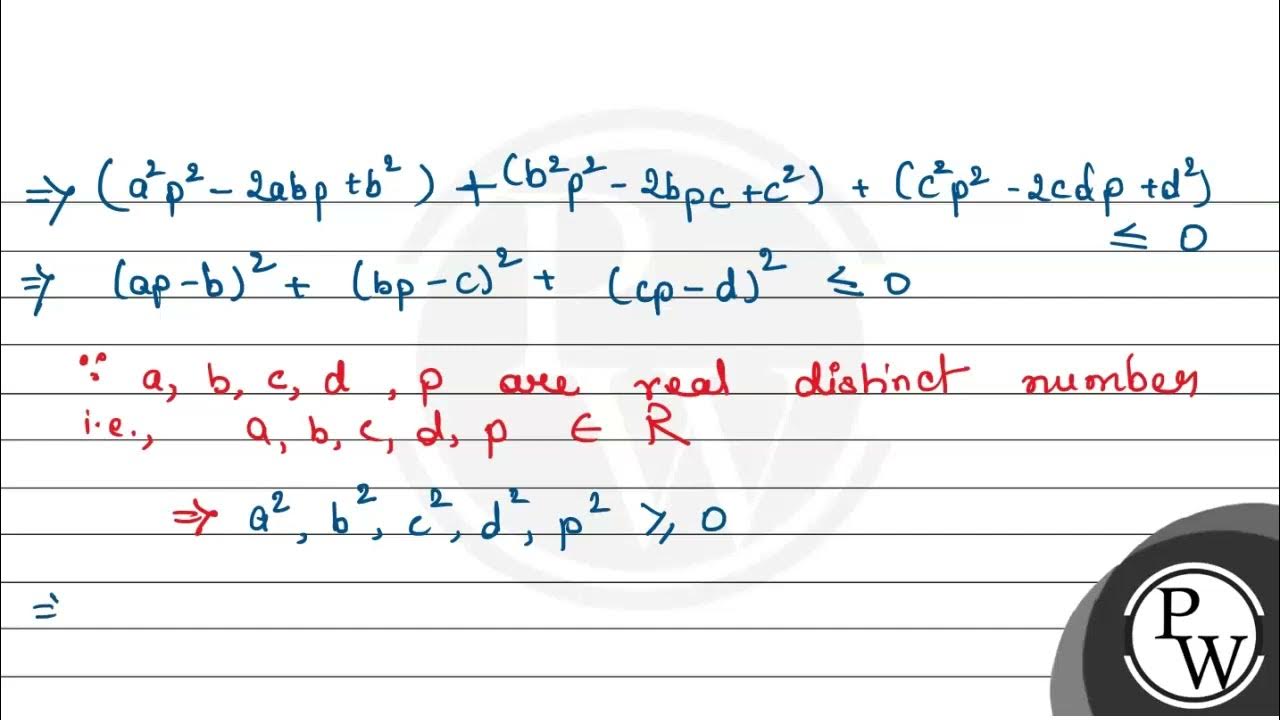 ⇒ (a²p² - 2abp + b²) + (b²p² - 2bpc + c²) + (c²p² - 2cdp + d²)
≤ 0
⇒ (ap - b)² + (bp - c)² + (cp - d)² ≤ 0
∵ a, b, c, d, p are real distinct number
i.e., a, b, c, d, p ∈ R
⇒ a², b², c², d², p² ⩾ 0
⇒
PW